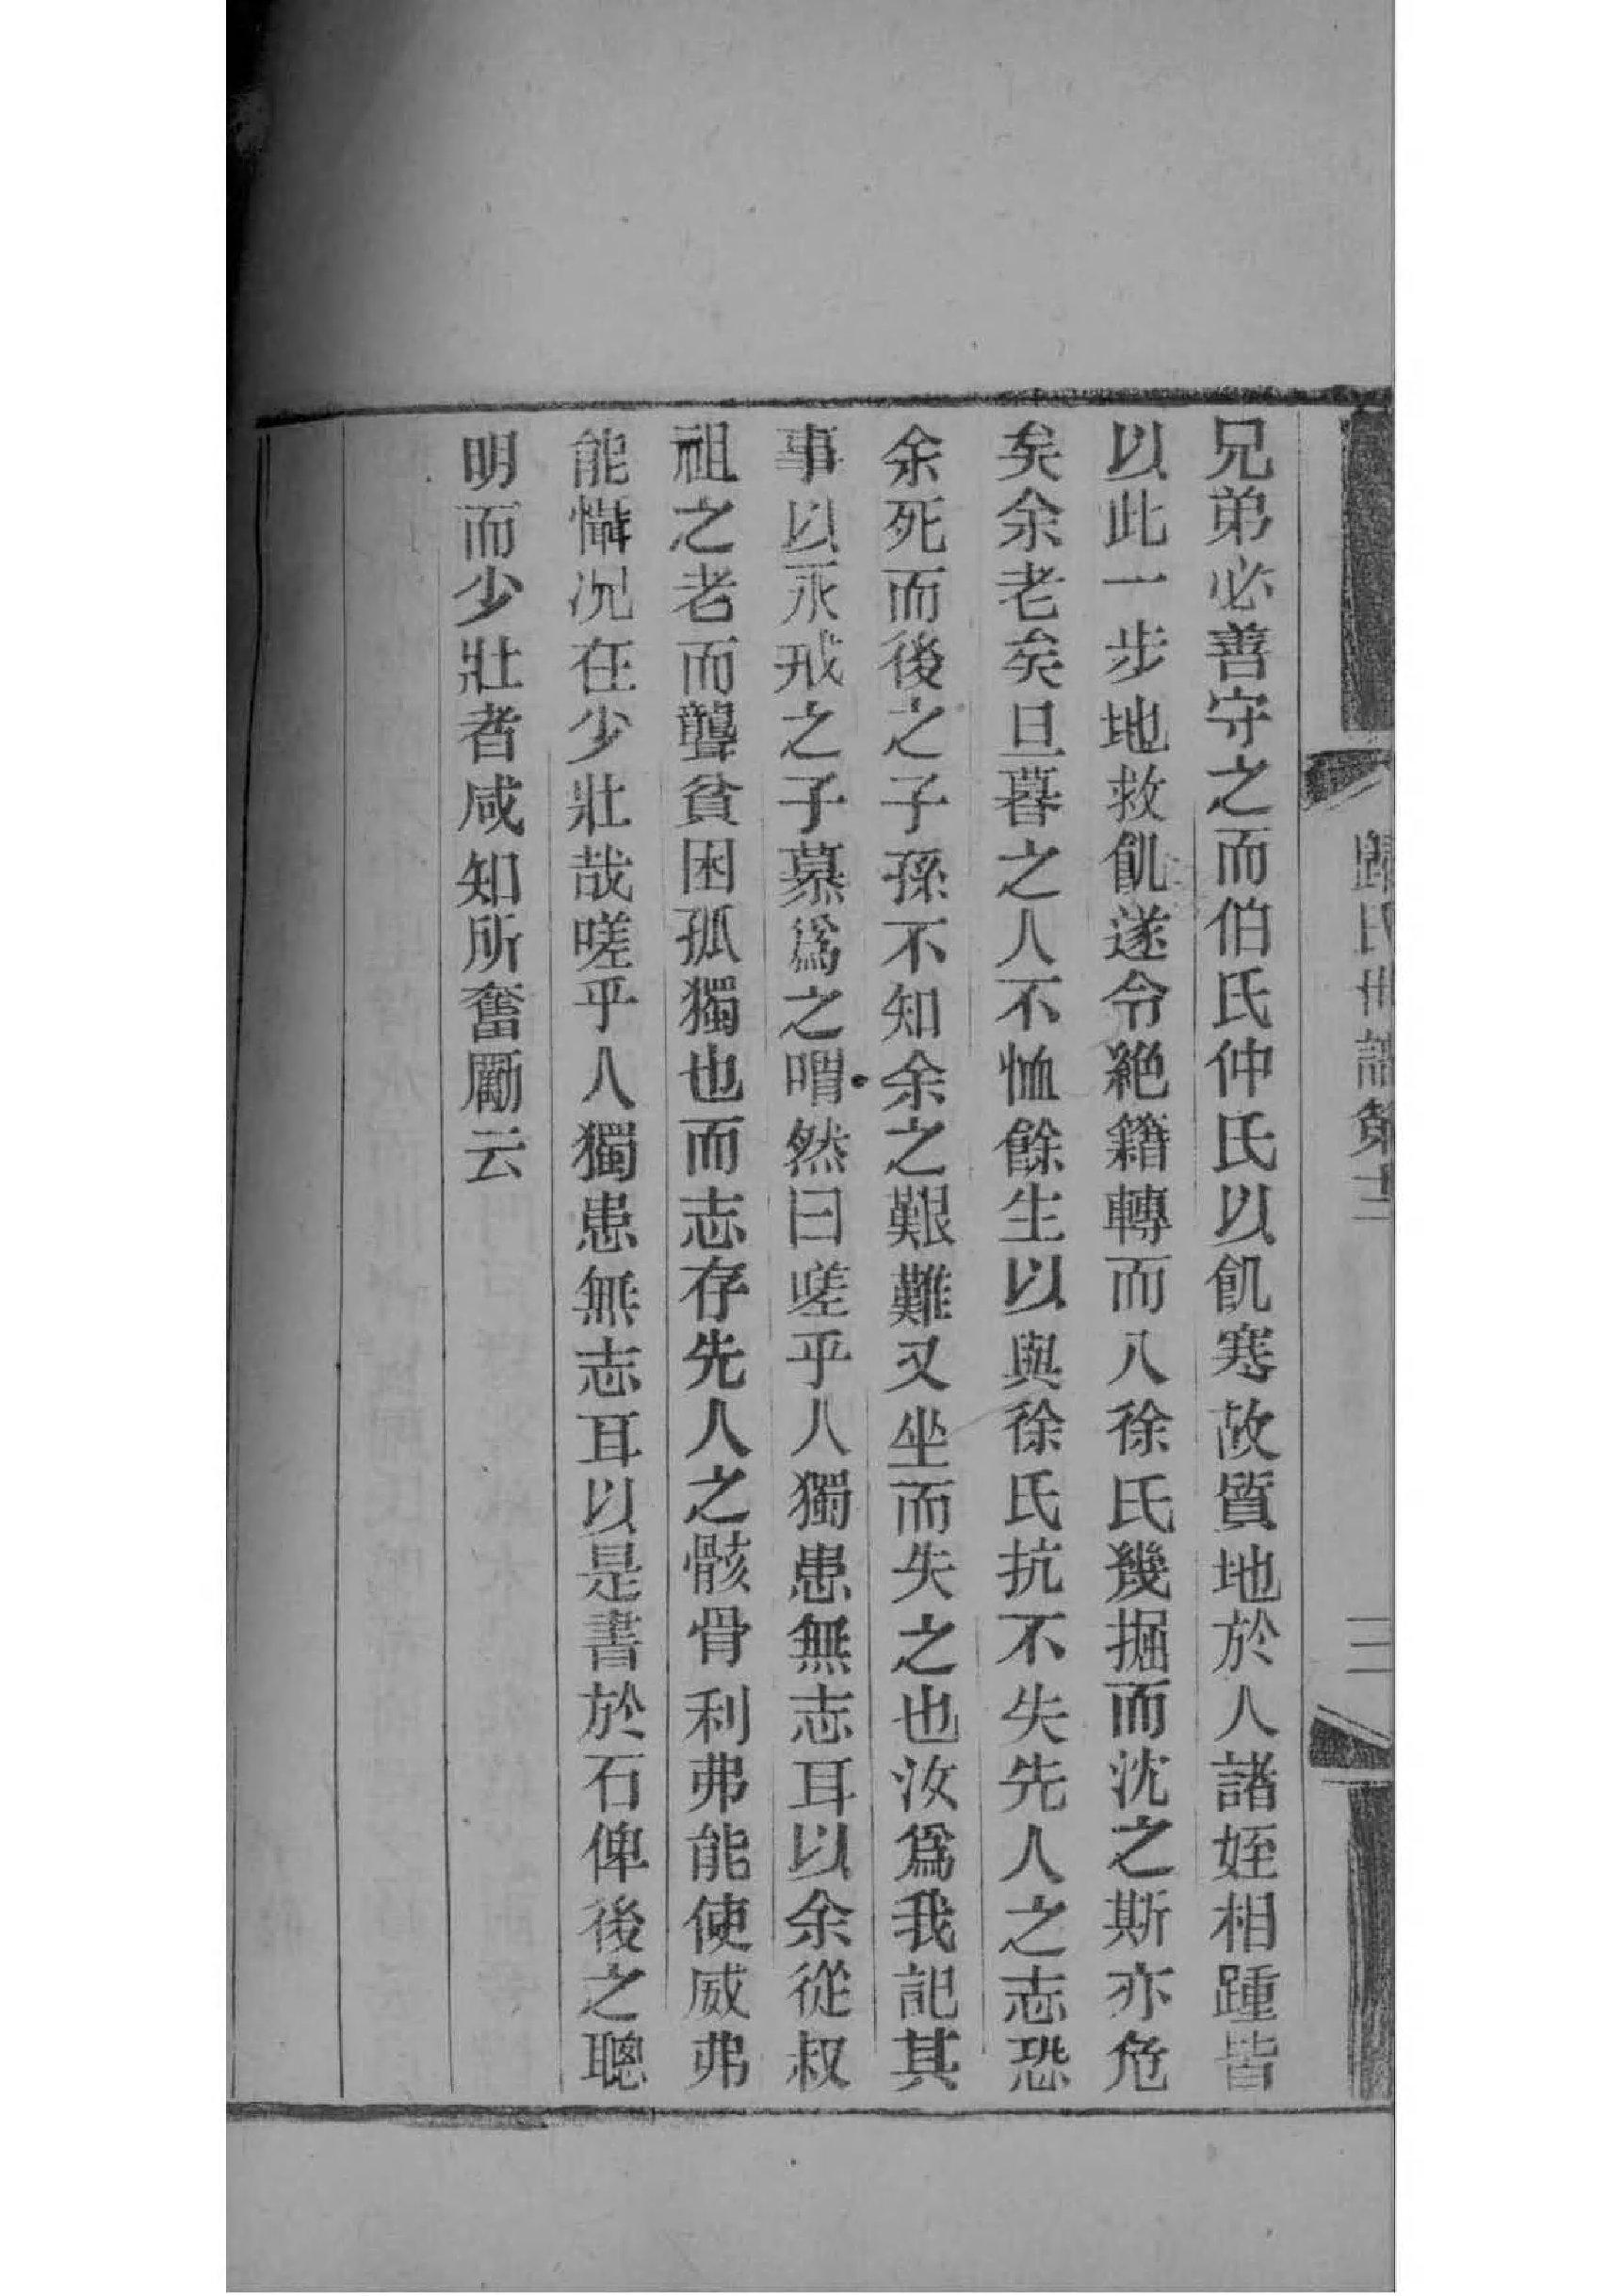 歸氏世譜第十二
二
兄弟必善守之而伯氏仲氏以飢寒故質地於人諸姪相踵皆
以此一步地救飢遂令絕籍轉而入徐氏幾掘而沈之斯亦危
矣余老矣旦暮之人不恤餘生以與徐氏抗不失先人之志恐
余死而後之子孫不知余之艱難又坐而失之也汝爲我記其
事以永戒之子慕爲之喟然曰嗟乎人獨患無志耳以余從叔
祖之老而聾貧困孤獨也而志存先人之骸骨利弗能使威弗
能懾况在少壯哉嗟乎人獨患無志耳以是書於石俾後之聰
明而少壯者咸知所奮勵云